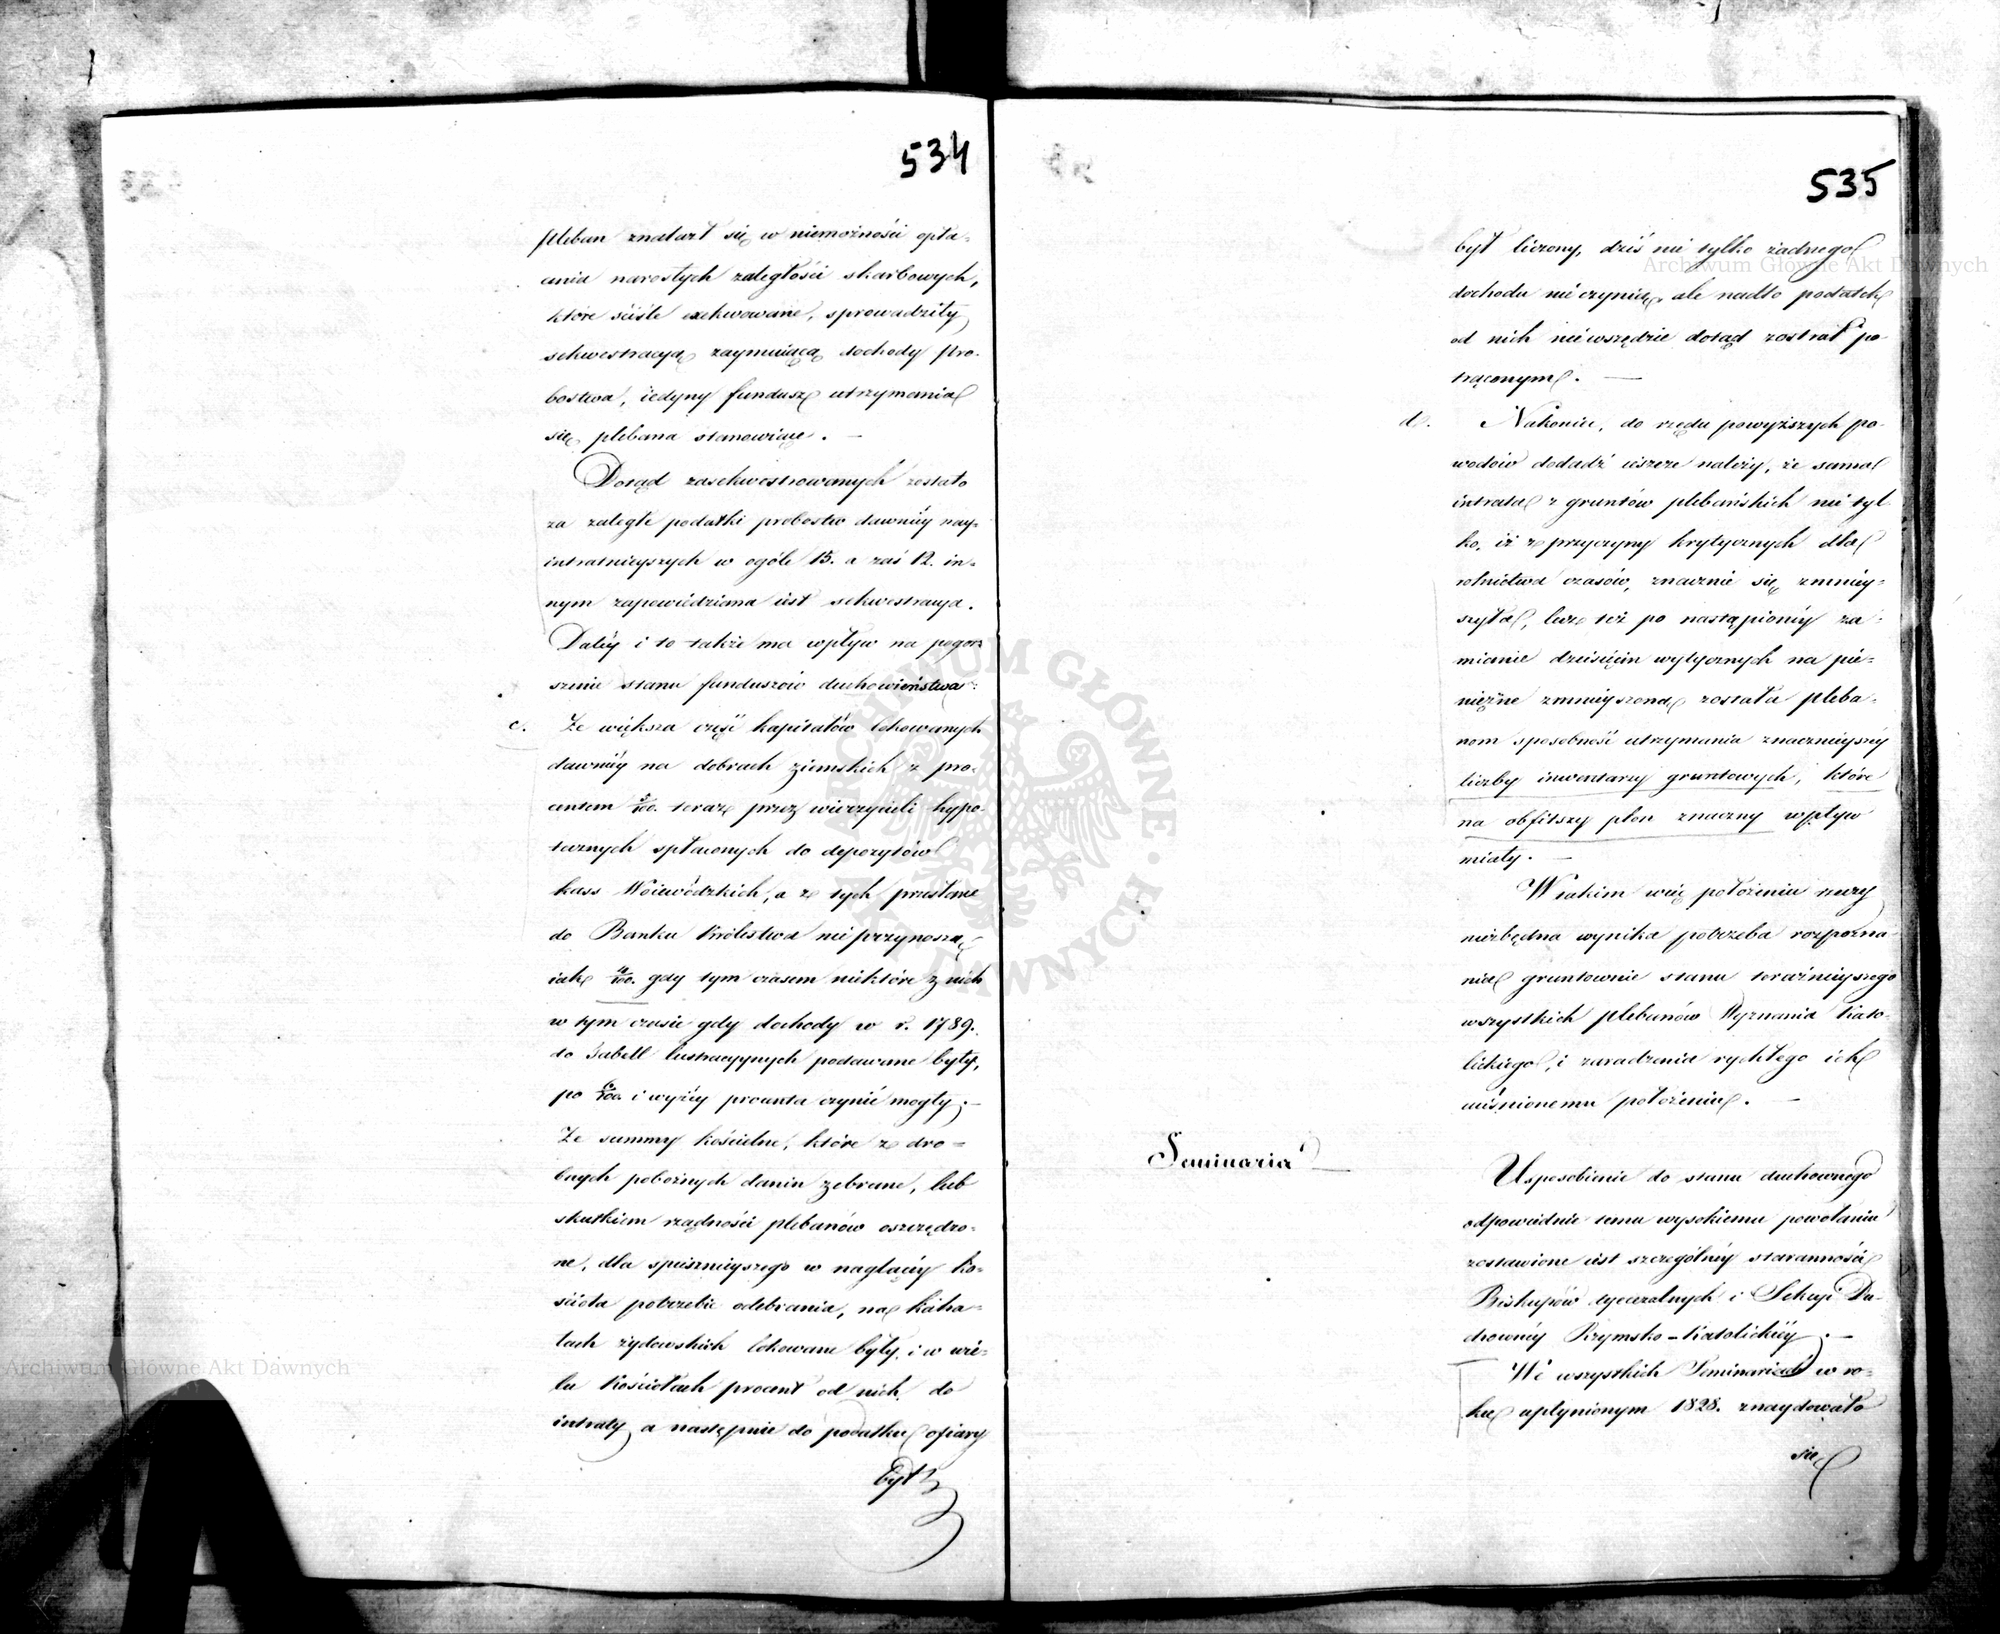 534
pleban znalazł się w niemożności opła-
cania narosłych zaległości skarbowych,
które ściśle exekwowane, sprowadziły
sekwestracyą zaymuiącą dochody pro-
bostwa, iedyny fundusz utrzymania
się plebana stanowiące. —
Dotąd zasekwestrowanych zostało
za zaległe podatki probostw dawniéy nay-
intratnieyszych w ogóle 15. a zaś 12. in-
nym zapowiedziana iest sekwestracya.
Daléy i to także ma wpływ na pogor-
szenie stanu funduszów duchowieństwa:
c. Że większa część kapitałów lokowanych
dawniéy na dobrach ziemskich z pro-
centem 5/100. teraz przez wierzycieli hypo-
tecznych spłaconych do depozytów
kass Woiewódzkich, a z tych przesłane
do Banku Królestwa nie przynoszą,
iak 4/100. gdy tym czasem niektóre z nich
w tym czasie gdy dochody w r. 1789.
do Tabell lustracyynych podawane były,
po 6/100. i wyżéy procenta czynić mogły. —
Że summy kościelne, które z dro-
bnych pobożnych danin zebrane, lub
skutkiem rządności plebanów oszczędzo-
ne, dla śpiesznieyszego w nagłącéy ko-
ścioła potrzebie odebrania, na kaha-
łach żydowskich lokowane były, i w wie-
lu Kościołach procent od nich do
intraty a następnie do podatku ofiary
był
535
był liczony, dziś nie tylko żadnego
dochodu nie czynią, ale nadto podatek
od nich niewszędzie dotąd został po-
trąconym. —
d. Nakoniec, do rzędu powyższych po-
wodów dodadź ieszcze należy, że sama
intrata z gruntów plebańskich nie tyl-
ko, iż z przyczyny krytycznych dla
rolnictwa czasów, znacznie się zmniéy-
szyła, lecz też po nastąpionéy za-
mianie dziesięcin wytycznych na pie-
niężne zmnieyszoną została pleba-
nom sposobność utrzymania znacznieyszéy
liczby inwentarzy gruntowych, które
na obfitszy plon znaczny wpływ
miały. —
W iakim więc położeniu rzeczy
niezbędna wynika potrzeba rozpozna-
nia gruntownie stanu teraźnieyszego
wszystkich plebanów Wyznania Kato-
lickiego, i zaradzenia rychłego ich
uciśnionemu położeniu. —
Seminaria —
Usposobienie do stanu duchownego
odpowiednie temu wysokiemu powołaniu
zostawione iest szczególnéy staranności
Biskupów dyecezalnych i Sekcyi Du-
chownéy Rzymsko-Katolickiéy. —
We wszystkich Seminariach w ro-
ku upłynionym 1828. znaydowało
się
Archiwum Główne Akt Dawnych
Archiwum Główne Akt Dawnych
ARCHIWUM GŁÓWNE AKT DAWNYCH